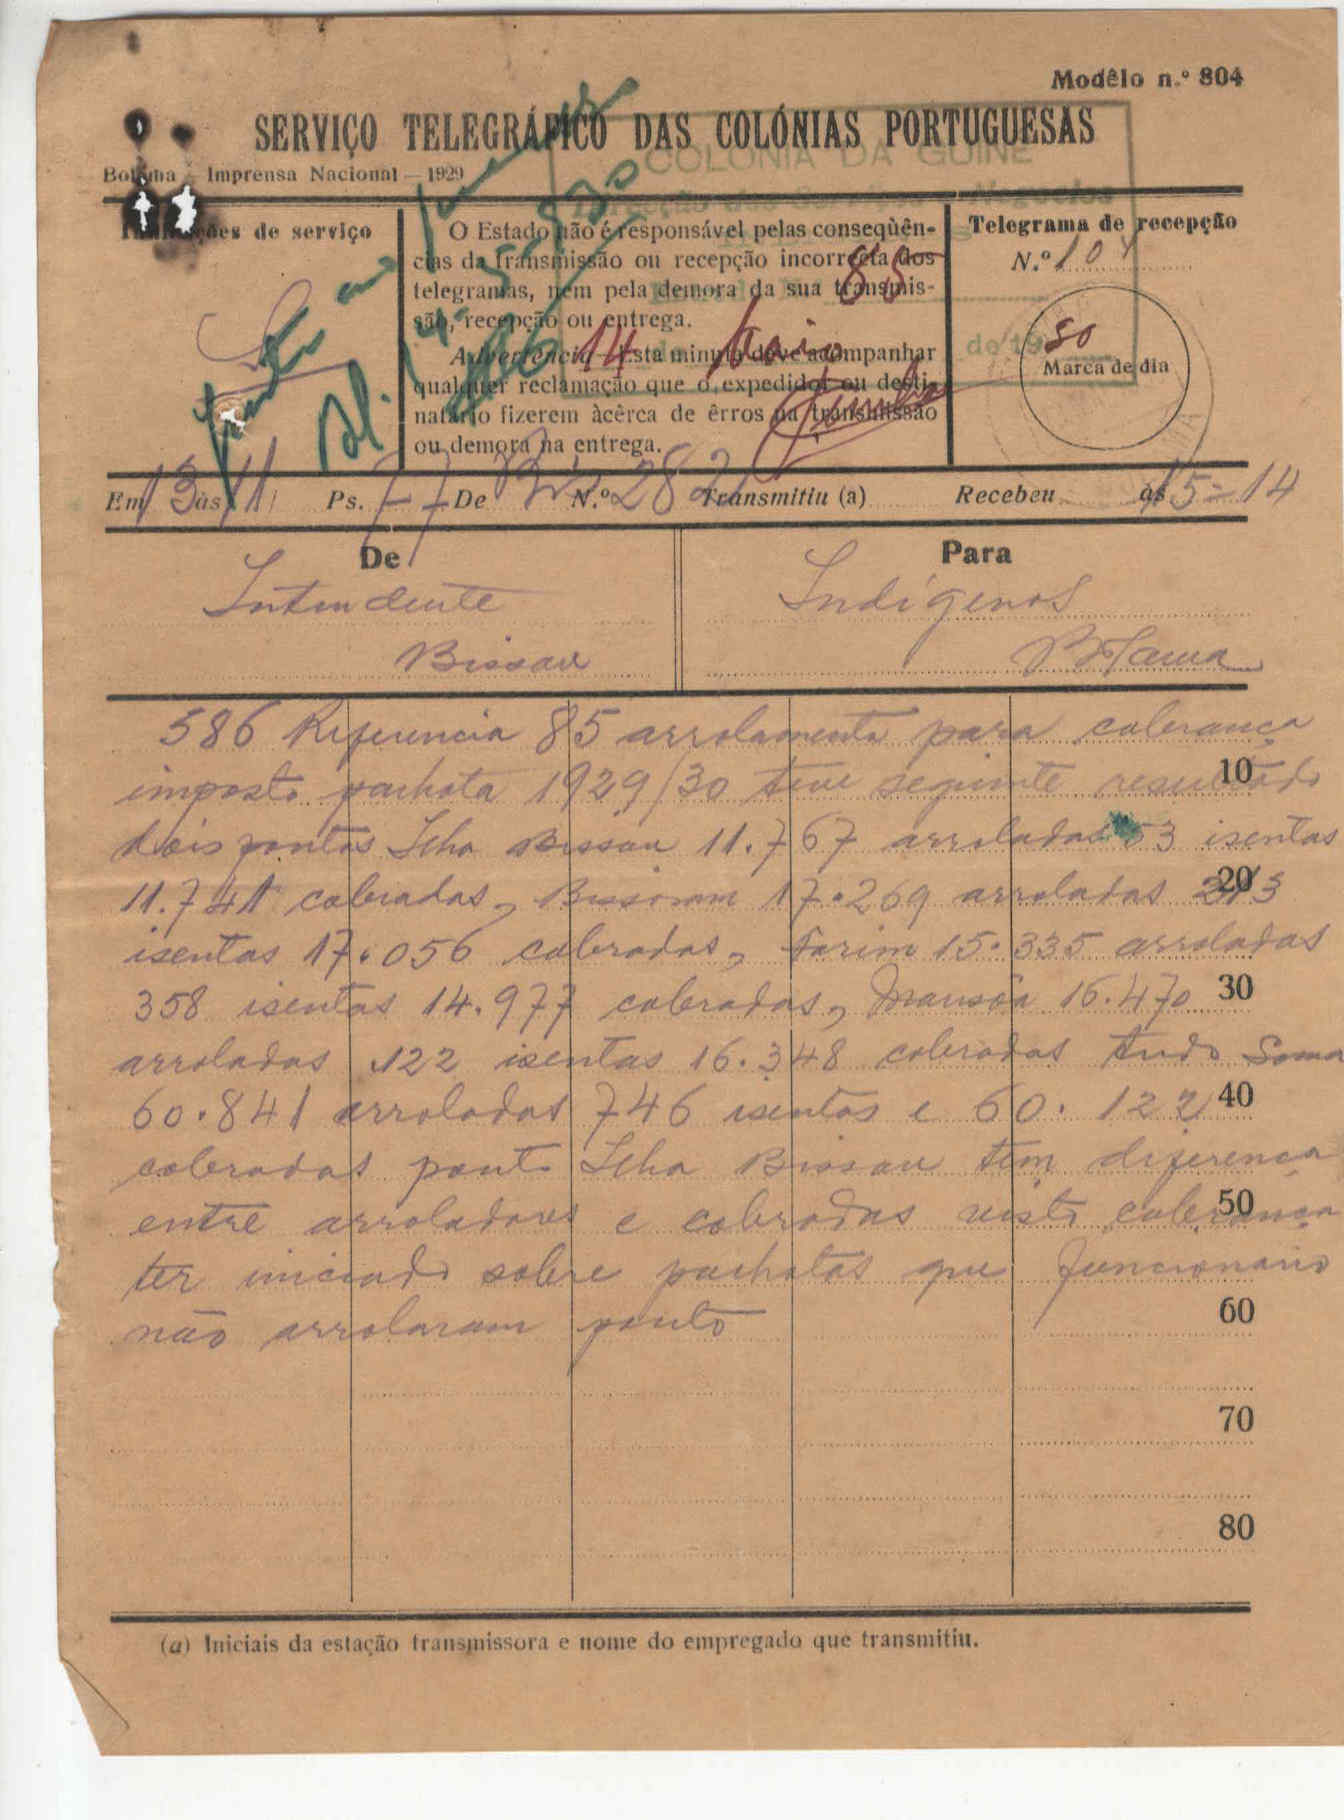 Modêlo n.º 804
SERVIÇO TELEGRÁFICO DAS COLÓNIAS PORTUGUESAS
COLONIA DA GUINÉ
Bolama — Imprensa Nacional — 1929
Indicações de serviço
O Estado não é responsável pelas conseqüên-
cias da transmissão ou recepção incorrecta dos
telegramas, nem pela demora da sua transmis-
são, recepção ou entrega.
Advertência — Esta minuta deve acompanhar
qualquer reclamação que o expedidor ou desti-
natário fizerem àcêrca de êrros na transmissão
ou demora na entrega.
85
14 Maio de 19 30
Telegrama de recepção
N.º 104
Marca de dia
Em 13 às 11 Ps. 77 De Bis N.º 282 Transmitiu (a) Recebeu às 15=14
De
Intendente
Bissau
Para
Indígenas
Bolama
586 Referencia 85 arrolamento para cobrança
imposto palhota 1929/30 teve seguinte resultado
dois pontos Ilha Bissau 11.767 arroladas 53 isentas
11.741 cobradas, Bissoram 17.269 arroladas 213
isentas 17.056 cobradas, Farim 15.335 arroladas
358 isentas 14.977 cobradas, Mansôa 16.470
arroladas 122 isentas 16.348 cobradas tudo soma
60.841 arroladas 746 isentas e 60.122
cobradas ponto Ilha Bissau tem diferença
entre arroladas e cobradas visto cobrança
ter iniciado sobre palhotas que funcionario
não arrolaram ponto
10
20
30
40
50
60
70
80
(a) Iniciais da estação transmissora e nome do empregado que transmitiu.